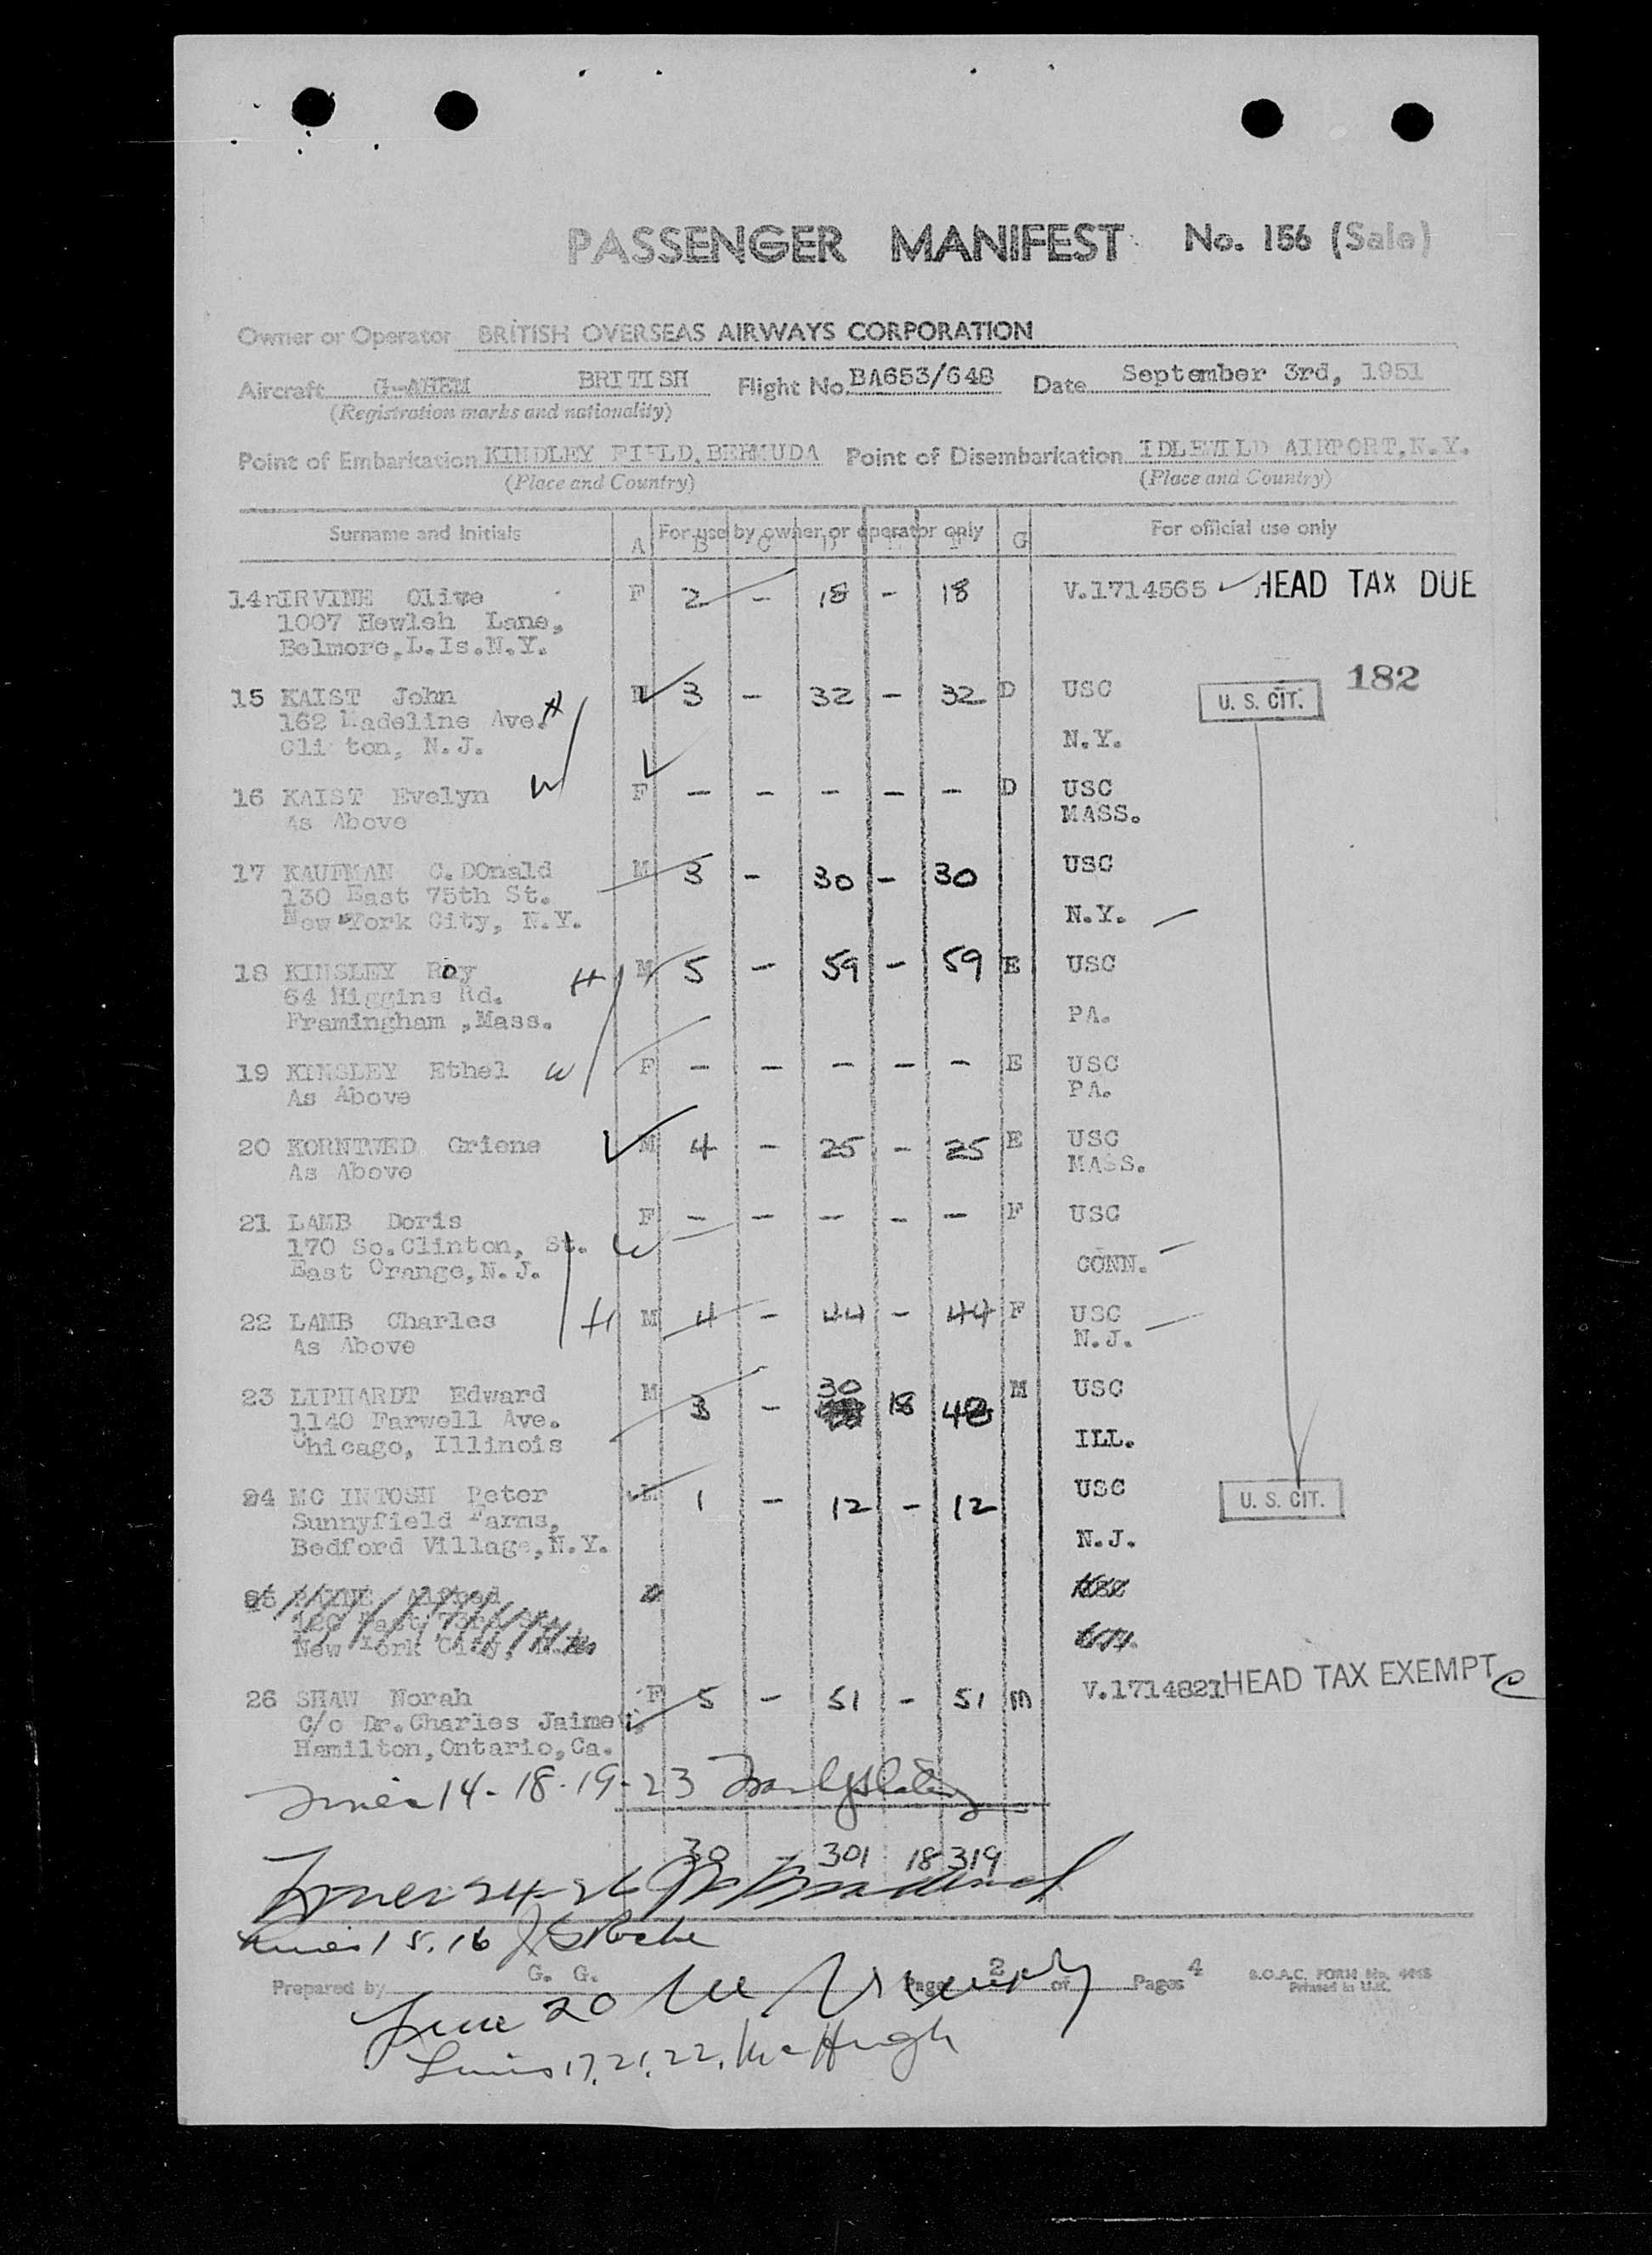 PASSENGER MANIFEST No. 156 (Sale)
Owner or Operator BRITISH OVERSEAS AIRWAYS CORPORATION
Aircraft G-AHEM BRITISH Flight No. BA653/648 Date September 3rd, 1951
(Registration marks and nationality)
Point of Embarkation KINDLEY FIELD, BERMUDA Point of Disembarkation IDLEWILD AIRPORT, N.Y.
(Place and Country) (Place and Country)
Surname and Initials For use by owner or operator only For official use only
A B C D E F G
14 IRVINE Olive F 2 - 18 - 18 V.1714565 HEAD TAX DUE
1007 Hewleh Lane,
Belmore, L.Is.N.Y.
182
15 KAIST John H M 3 - 32 - 32 D USC U. S. CIT.
162 Madeline Ave.
Clifton, N.J. N.Y.
16 KAIST Evelyn W F - - - - - D USC
As Above MASS.
17 KAUFMAN C.DOnald M 3 - 30 - 30 USC
130 East 75th St.
New York City, N.Y. N.Y.
18 KINSLEY Roy H M 5 - 59 - 59 E USC
64 Higgins Rd.
Framingham ,Mass. PA.
19 KINSLEY Ethel W F - - - - - E USC
As Above PA.
20 KORNTVED Griene M 4 - 25 - 25 E USC
As Above MASS.
21 LAMB Doris F - - - - - F USC
170 So.Clinton, St. W
East Orange, N.J. CONN.
22 LAMB Charles H M 4 - 44 - 44 F USC
As Above N.J.
23 LIPHARDT Edward M 3 - 30 18 48 M USC
1140 Farwell Ave.
Chicago, Illinois ILL.
24 MC INTOSH Peter M 1 - 12 - 12 USC U. S. CIT.
Sunnyfield Farms,
Bedford Village, N.Y. N.J.
New York City,
26 SHAW Norah F 5 - 51 - 51 M V.1714821 HEAD TAX EXEMPT
C/o Dr.Charles Jaimet,
Hamilton, Ontario, Ca.
Lines 14-18-19-23
30 - 301 18 319
Lines 24-26
Lines 15.16 J S Roche
Prepared by G. G. Page 2 of Pages 4 B.O.A.C. FORM No.
Printed in U.K.
Line 20
Lines 17, 21, 22, McHugh